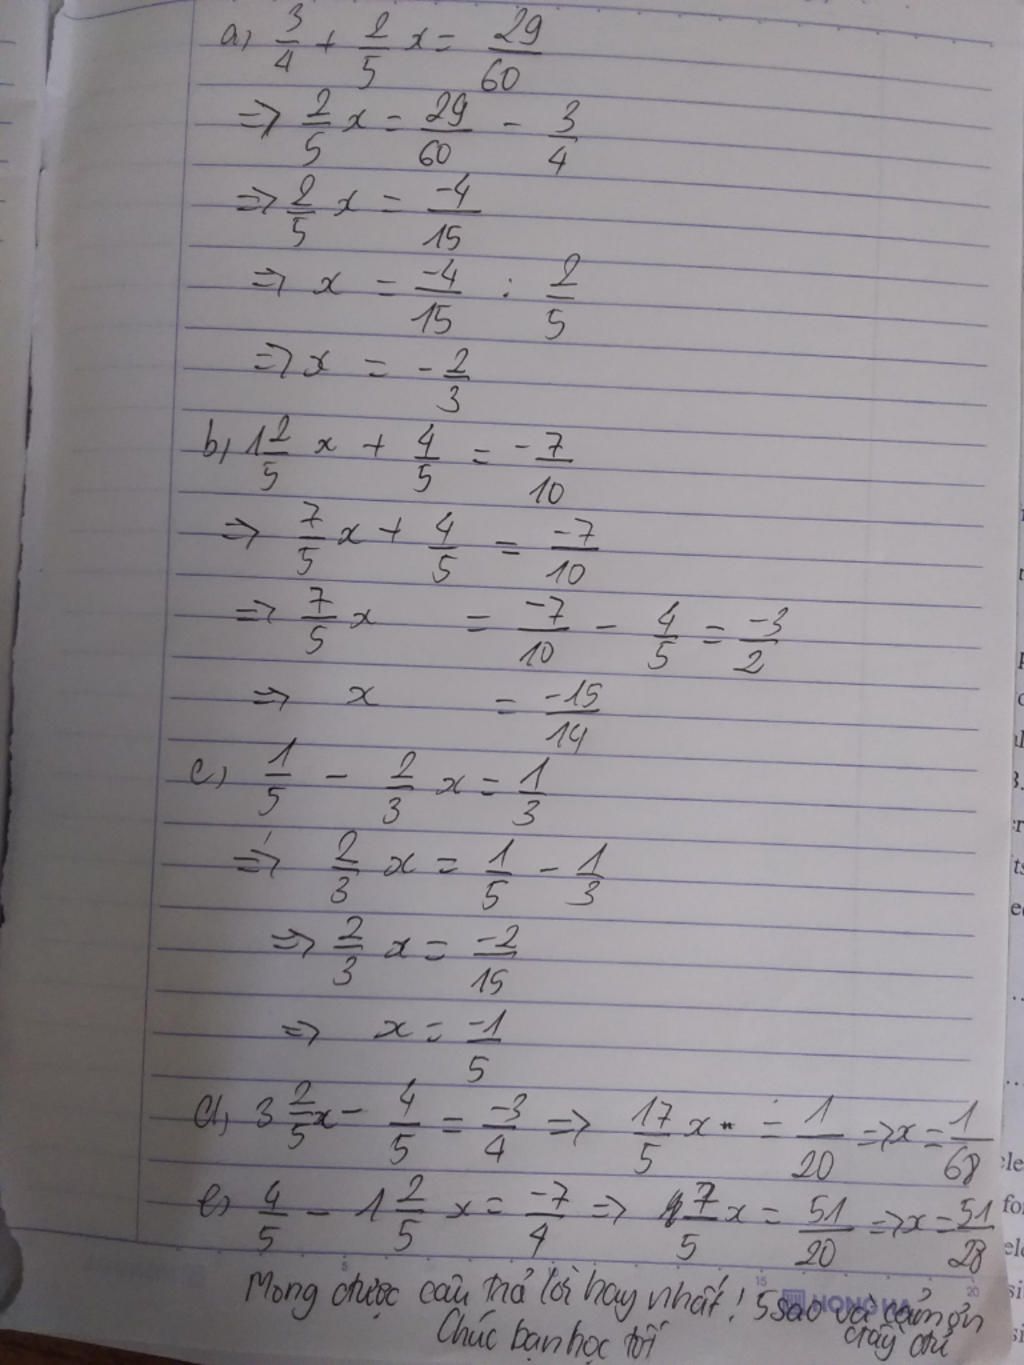 a) 3/4 + 2/5 x = 29/60
=> 2/5 x = 29/60 - 3/4
=> 2/5 x = -4/15
=> x = -4/15 : 2/5
=> x = -2/3
b) 1 2/5 x + 4/5 = -7/10
=> 7/5 x + 4/5 = -7/10
=> 7/5 x = -7/10 - 4/5 = -3/2
=> x = -15/14
c) 1/5 - 2/3 x = 1/3
=> 2/3 x = 1/5 - 1/3
=> 2/3 x = -2/15
=> x = -1/5
d) 3 2/5 x - 4/5 = -3/4 => 17/5 x = 1/20 => x = 1/68
e) 4/5 - 1 2/5 x = -7/4 => 7/5 x = 51/20 => x = 51/28
Mong được câu trả lời hay nhất! 5 sao và cảm ơn
đầy đủ
Chúc bạn học tốt
HONG HA